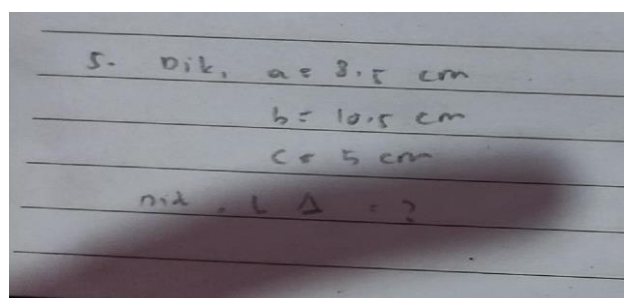 5. Dik, a = 8.5 cm
b = 10.5 cm
c = 5 cm
Dit. L Δ = ?